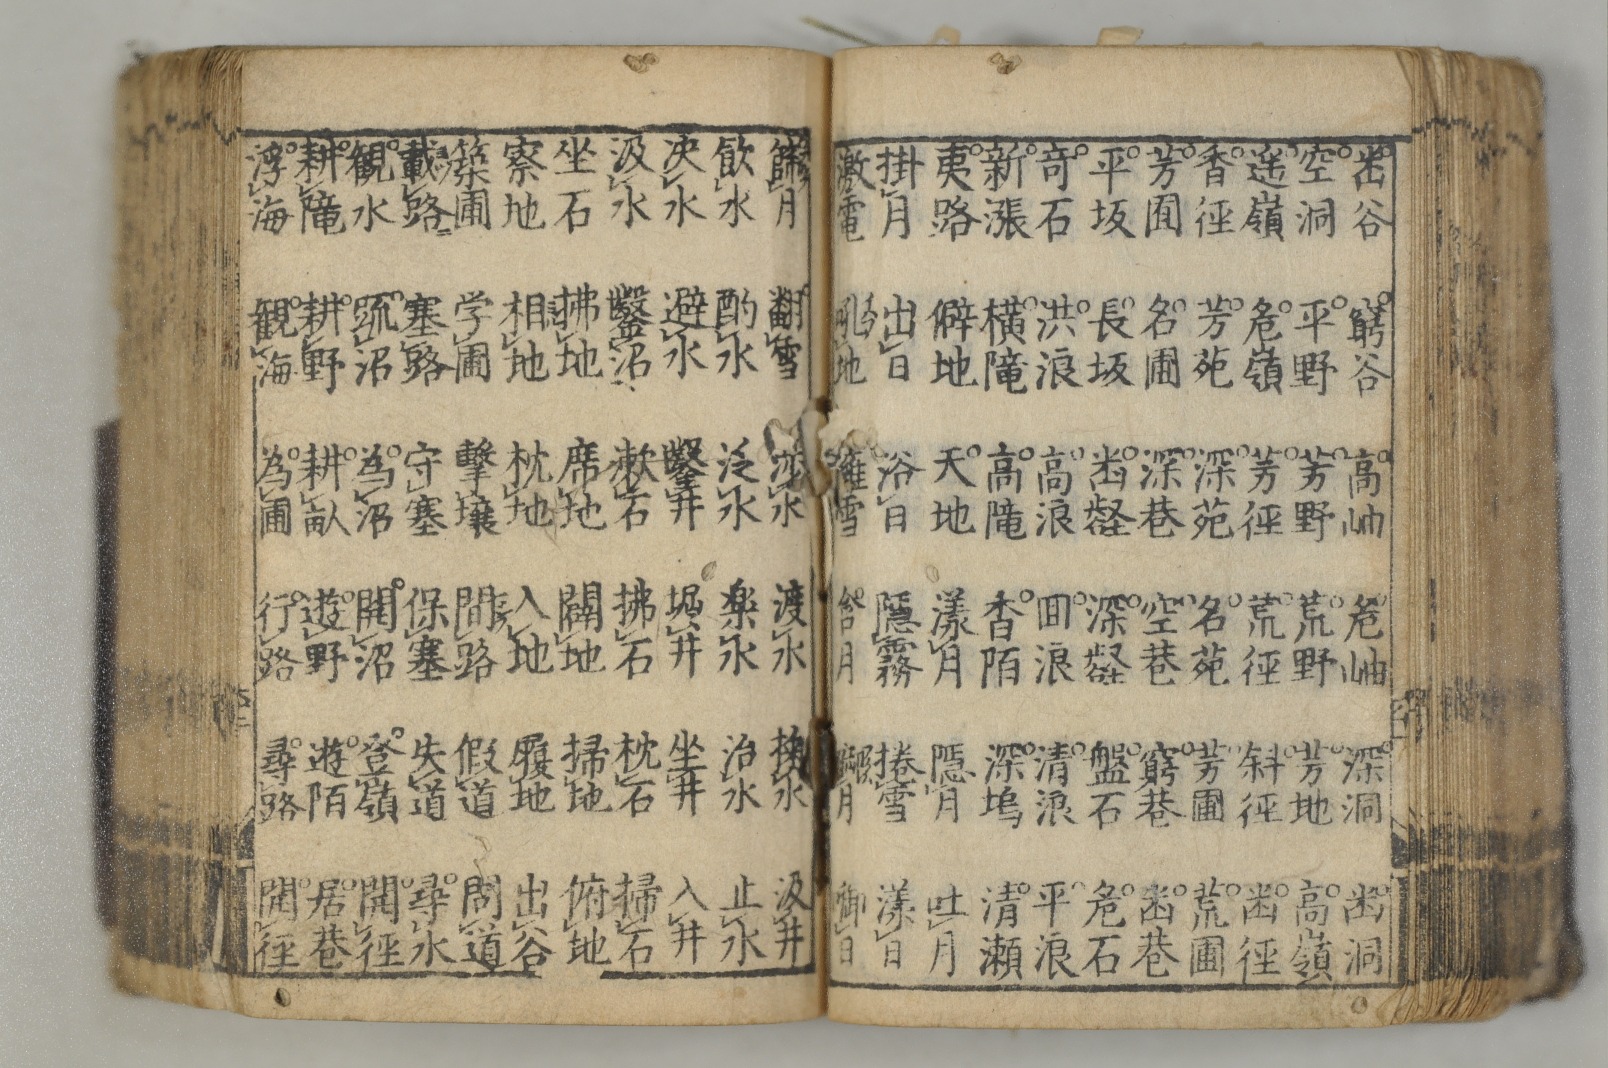 幽谷 窮谷 高岫 危岫 深洞 幽洞
空洞 平野 芳野 荒野 芳地 高嶺
遥嶺 危嶺 芳径 荒径 斜径 幽径
香径 芳苑 深苑 名苑 芳圃 荒圃
芳園 名圃 深巷 空巷 窮巷 幽巷
平坂 長坂 幽壑 深壑 盤石 危石
奇石 洪浪 高浪 回浪 清浪 平浪
新漲 横隴 高隴 香陌 深塢 清瀬
夷路 僻地 天地 漾月 隠月 吐月
掛月 出日 浴日 隠霧 捲雪 漾日
激電 地 擁雪 月 月 日
月 翻雪 水 渡水 水 汲井
飲水 酌水 泛水 楽水 治水 止水
决水 避水 鑿井 堀井 坐井 入井
汲水 鑿沼 漱石 拂石 枕石 掃石
坐石 拂地 席地 闢地 掃地 俯地
察地 相地 枕地 入地 履地 出谷
築圃 学圃 撃壌 間路 假道 問道
載路 塞路 守塞 保塞 失道 尋水
観水 疏沼 為沼 開沼 登嶺 開径
耕隴 耕野 耕畝 遊野 遊陌 居巷
浮海 観海 為圃 行路 尋路 開径